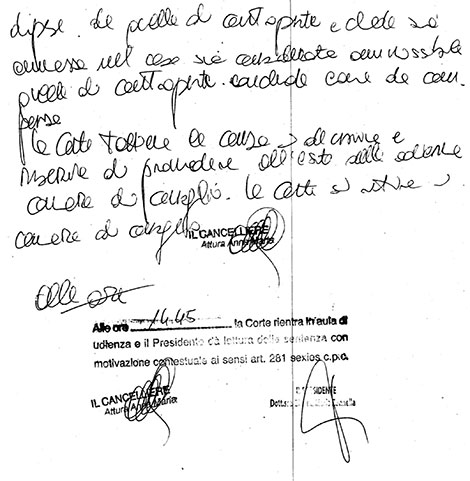 di quelle di controparte e chiede sia
ammessa nel caso sia considerata ammissibile
quella di controparte. conclude come da com
parsa
La Corte trattiene la causa a decisione e
riserva di provvedere all'esito della odierna
camera di consiglio. La Corte si ritira in
camera di consiglio
IL CANCELLIERE
Attura Anna Maria
Alle ore
Alle ore 14.45 la Corte rientra in aula di
udienza e il Presidente dà lettura della sentenza con
motivazione contestuale ai sensi art. 281 sexies c.p.c.
IL CANCELLIERE
Attura Anna Maria
PRESIDENTE
Dott.ssa